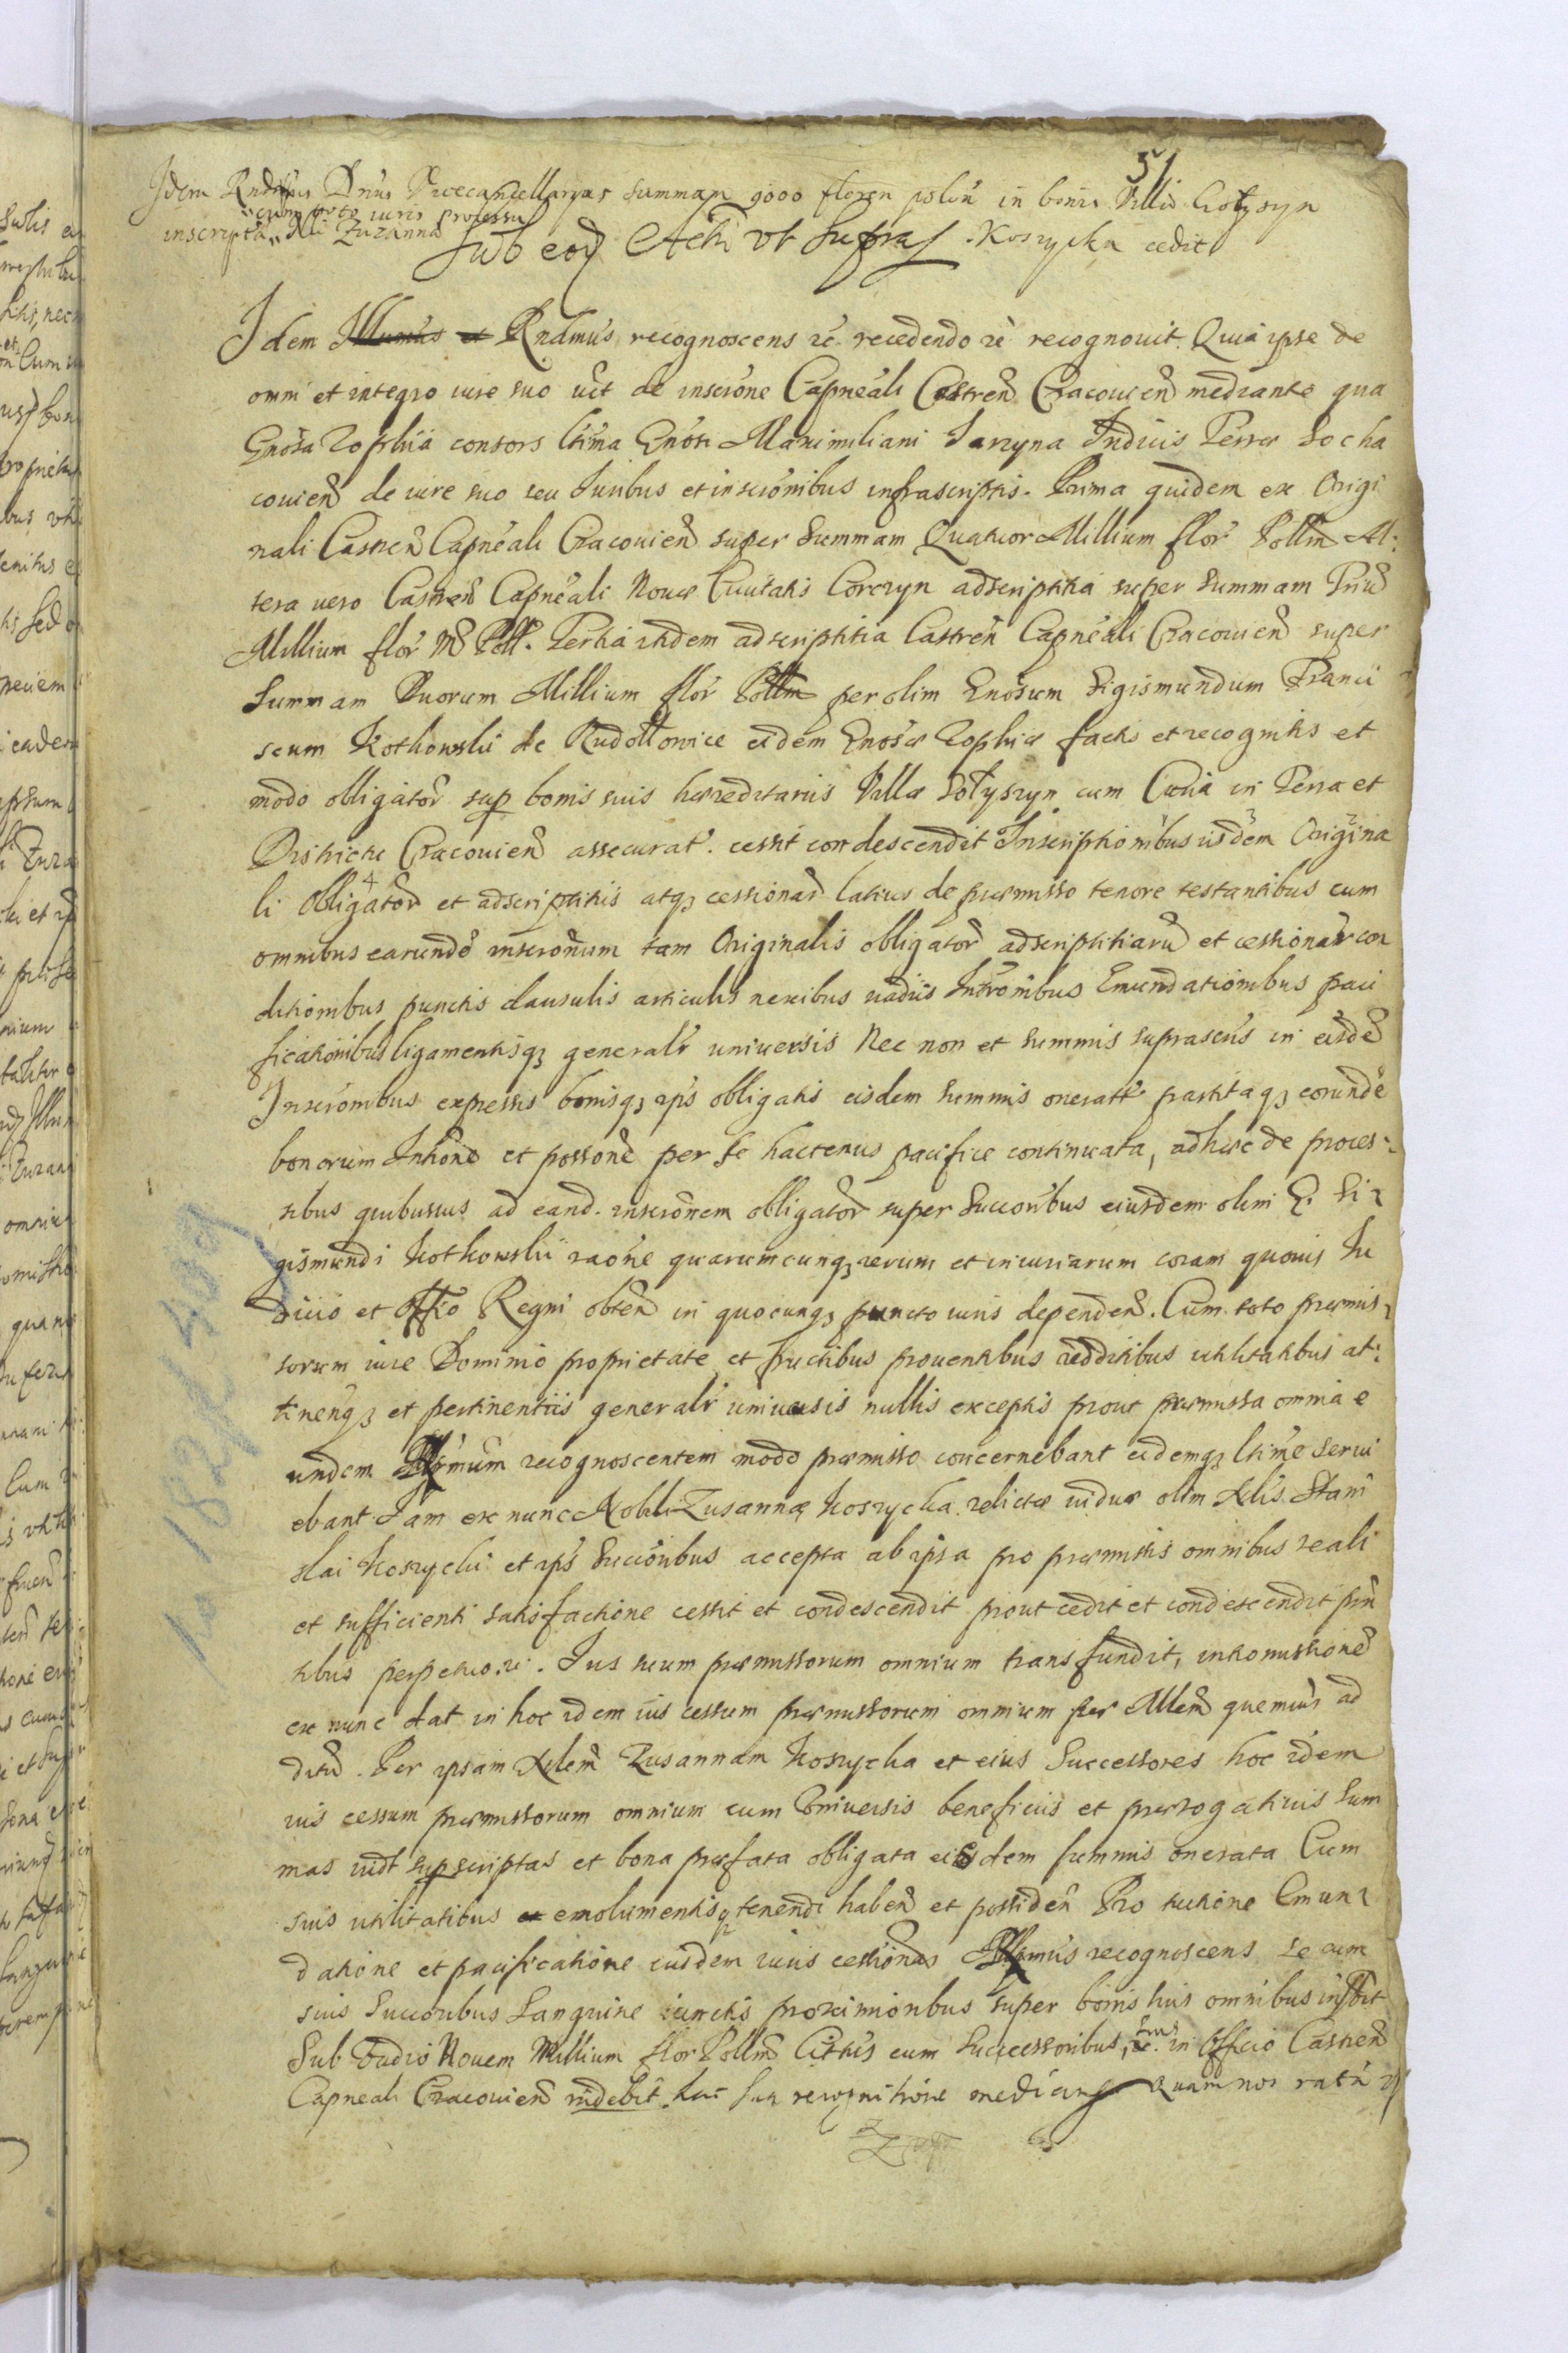 51
Idem Rndssimus Dnus Procancellarius summam 9000 floren polon in bonis Villae Sołyszyn
inscripta cum toto iuris processu Nli Zuzanna
Sub eod Actu vt supra Koszycka cedit
Idem Illumus et Rndmus recognoscens rc recedendo rc recognouit. Quia ipse de
omni et integro iure suo uct de inscrone Capneali Castren Cracouien mediante qua
Gnosa Zophia consors ltima Gnosi Maximiliani Jarzyna Iudicis Terrae Socha
couien de iure suo seu Iuribus et inscronibus infrascriptis. Prima quidem ex Origi
nali Castren Capneali Cracouien super Summam Quatuor Millium flor Pollm Al:
tera uero Castren Capneali Nouae Ciuitatis Corczyn adscriptitia super Summam Triu
Millium flor M Poll. Tertia itidem adscriptitia Castren Capneali Cracouien super
Summam Duorum Millium flor Pollm per olim Gnosum Sigismundum Franci
scum Kotkowski de Rudołtowice eidem Gnosae Zophiae factis et recognitis et
modo obligator sup bonis suis haereditariis Villae Sołyszyn cum Curia in Terra et
Districtu Cracouien assecurat. cessit condescendit Inscriptionibus iisdem Origina
li Obligator et adscriptitiis atq cessionar latius de praemisso tenore testantibus cum
omnibus earunde inscronum tam Originalis obligator adscriptitiaru et cessionar con
ditionibus punctis clausulis articulis nexibus uadiis Intromibus Emundationibus paci
ficationibus ligamentisq generalr uniuersis Nec non et summis suprascris in eisde
Inscronibus expressis bonisq ips obligatis eisdem summis oneratt partitaq eorunde
bonorum Intione et possone per se hactenus pacifice continuata, adhuc de proces:
sibus quibusuis ad eand. inscronem obligator super Succoribus eiusdem olim G. Si
gismundi Kotkowski raone quarumcunq rerum et iniuriarum coram quouis Iu
dicio et Offio Regni obten in quocunq puncto iuris dependen. Cum toto praemis
sorum iure Dominio proprietate et fructibus prouentibus redditibus utilitatibus at:
tinenq et pertinentiis generalr uniuersis nullis exceptis prout praemissa omnia e
undem recognoscentem modo praemisso concernebant eidemq ltime serui
ebant Iam ex nunc Nobili Zusannae Koszycka relictae uiduae olim Nlis Stani
slai Koszycki et ips Succoribus accepta ab ipsa pro praemissis omnibus reali
et sufficienti satisfactione cessit et condescendit prout cedit et condescendit prn
tibus perpetuo. rc. Ius suum praemissorum omnium transfundit, intromissione
ex nunc dat in hoc idem ius cessum praemissorum omnium per Mllem quemuis ad
ditu. Per ipsam Nlem Zusannam Koszycka et eius Successores hoc idem
ius cessum praemissorum omnium cum Vniuersis beneficiis et praerogatiuis Sum
mas uidt supscriptas et bona praefata obligata eisdem summis onerata Cum
suis utilitatibus et emolumentisq tenendi haben et possiden Pro tuitione Emun
datione et pacificatione eiusdem iuris cessionar recognoscens se cum
suis Succoribus Sanguine iunctis proximioribus super bonis suis omnibus inscbit
Sub Vadio Nouem Millium flor Pollm Cittus cum Successoribus, rc. in Officio Castren
Capneali Cracouien rndebit hac sua recognitione mediante Quam nos ratā